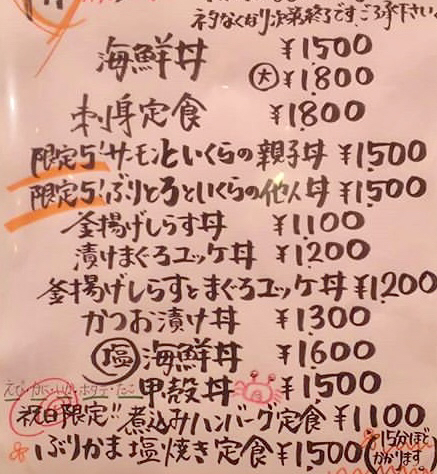 ネタなくなり次第終了です。ご了承下さい。
海鮮丼 ¥1500
大 ¥1,800
刺身定食 ¥1800
限定5!サーモンといくらの親子丼 ¥1,500
限定5!ぶりとろといくらの他人丼 ¥1,500
釜揚げしらす丼 ¥1,100
漬けまぐろユッケ丼 ¥1200
釜揚げしらすとまぐろユッケ丼 ¥1,200
かつお漬け丼 ¥1300
塩海鮮丼 ¥1600
えび・カニ・いか・ホタテ・たこ
甲殻丼 ¥1500
祝日限定!!煮込みハンバーグ定食 ¥1100
ぶりかま塩焼き定食 ¥1500
15分ほど
かかります